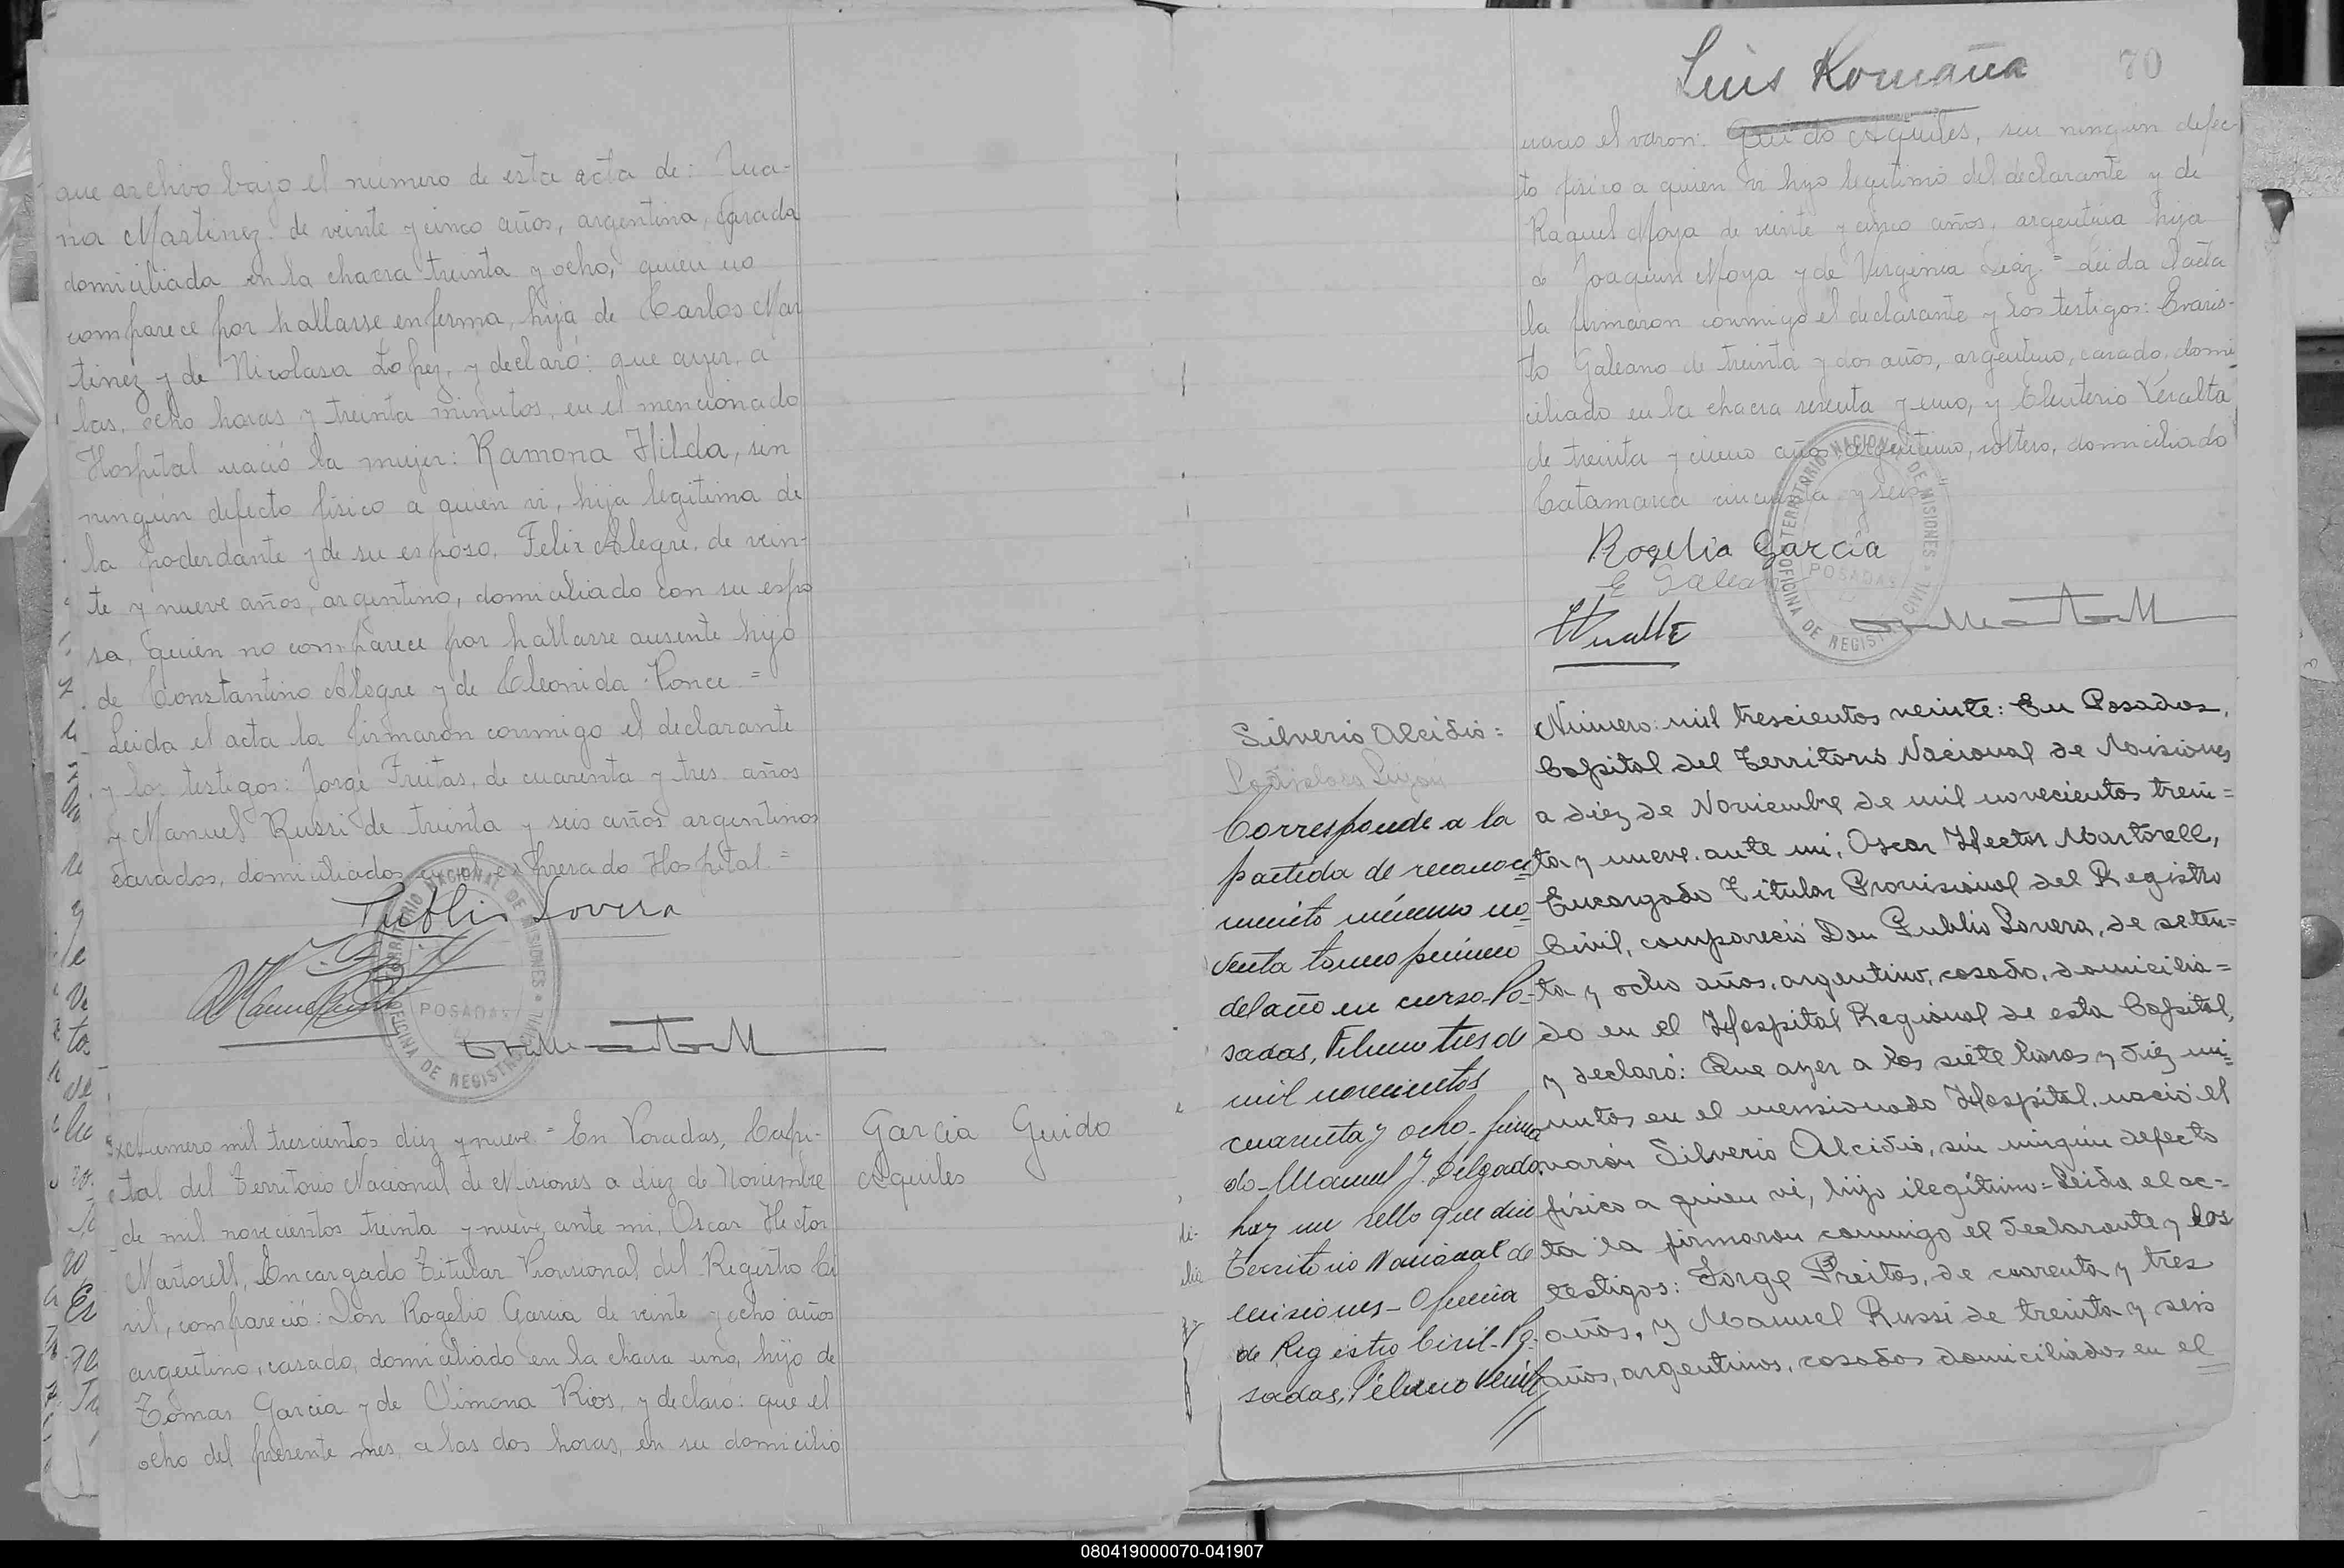 que archivo bajo el número de esta acta de: Jua-
na Martinez de veinte y cinco años, argentina, casada
domiciliada en la chacra treinta y ocho, quien no
comparece por hallarse enferma, hija de Carlos Mar
tinez y de Nicolasa Lopez, y declaró: que ayer, a
las, ocho horas y treinta minutos, en el mencionado
Hospital nació la mujer: Ramona Hilda, sin
ningún defecto físico a quien vi, hija legitima de
la poderdante y de su esposo, Felix Alegre, de vein-
te y nueve años, argentino, domiciliado con su espo
sa, quien no comparece por hallarse ausente hijo
de Constantino Alegre y de Cleonida Ponce =
Leida el acta la firmaron conmigo el declarante
y los testigos: Jorge Freitas, de cuarenta y tres años
y Manuel Russi de treinta y seis años argentinos
casados, domiciliados en el expresado Hospital =
Publio Lovera
TERRITORIO NACIONAL DE MISIONES
POSADAS
OFICINA DE REGISTRO CIVIL
Número mil trescientos diez y nueve = En Posadas, Capi-
tal del Territorio Nacional de Misiones a diez de Noviembre
de mil novecientos treinta y nueve, ante mi, Oscar Hector
Martorell, Encargado Titular Provisional del Registro Ci
vil, compareció: Don Rogelio Garcia de veinte y ocho años
argentino, casado, domiciliado en la chacra uno, hijo de
Tomas Garcia y de Simona Rios, y declaró: que el
ocho del presente mes, a las dos horas, en su domicilio
Garcia Guido
Aquiles
Luis Romaña
70
nacio el varon: Guido Aquiles, sin ningún defec-
to fisico a quien vi hijo legitimo del declarante y de
Raquel Moya de veinte y cinco años, argentina hija
de Joaquin Moya y de Virginia Diaz = Leida el acta
la firmaron conmigo el declarante y los testigos: Evaris-
to Galeano de treinta y dos años, argentino, casado, domi
ciliado en la chacra sesenta y uno, y Eleuterio Peralta
de treinta y cinco años argentino, soltero, domiciliado
Catamarca cincuenta y seis
Rogelio Garcia
E Galeano
TERRITORIO NACIONAL DE MISIONES
POSADAS
OFICINA DE REGISTRO CIVIL
Silverio Alcidio =
Corresponde a la
partida de reconoci
miento número no
venta tomo primero
del año en curso. Po-
sadas, Febrero tres de
mil novecientos
cuarenta y ocho - firma
do - Manuel J. Delgado
hay un sello que dice
Territorio Nacional de
misiones - Oficina
de Registro Civil - Po-
sadas, Febrero
Número: mil trescientos veinte: En Posadas,
Capital del Territorio Nacional de Misiones
a diez de Noviembre de mil novecientos trein=
ta y nueve. ante mi, Oscar Hector Martorell,
Encargado Titular Provisional del Registro
Civil, compareció Don Publio Lovera, de seten=
ta y ocho años, argentino, casado, domicilia=
do en el Hospital Regional de esta Capital,
y declaró: Que ayer a las siete horas y diez mi=
nutos en el mensionado Hospital, nació el
varón Silverio Alcidio, sin ningún defecto
físico a quien vi, hijo ilegítimo = Leida el ac=
ta la firmaron conmigo el declarante y los
testigos: Jorge Freitas, de cuarenta y tres
años, y Manuel Russi de treinta y seis
años, argentinos, casados domiciliados en el
080419000070-041907